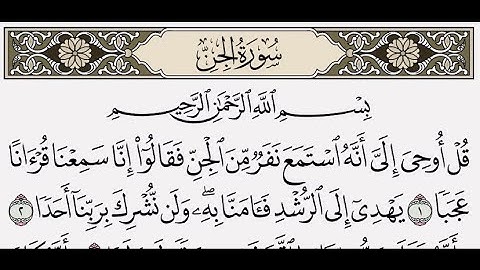 سُورَةُ الجِنِّ
بِسْمِ اللَّهِ الرَّحْمَٰنِ الرَّحِيمِ
قُلْ أُوحِىَ إِلَىَّ أَنَّهُ ٱسْتَمَعَ نَفَرٌ مِّنَ ٱلْجِنِّ فَقَالُوٓا۟ إِنَّا سَمِعْنَا قُرْءَانًا
عَجَبًا ١ يَهْدِىٓ إِلَى ٱلرُّشْدِ فَـَٔامَنَّا بِهِۦ ۖ وَلَن نُّشْرِكَ بِرَبِّنَآ أَحَدًا ٢